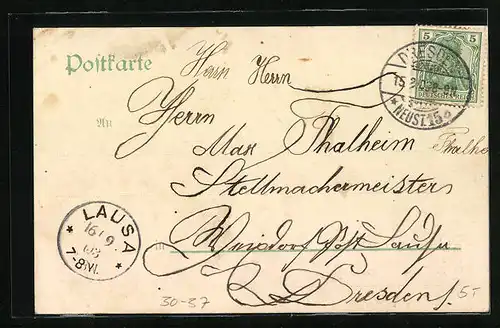 5 5
Postkarte
Herrn Herrn
DRESDEN
15.9.
* NEUST. 15 *
An
Herrn
Max Thalheim
Stellmachermeister
LAUSA
16/9
03
7-8N.
in
Weixdorf Post Lausa
Dresden
30-37
5-